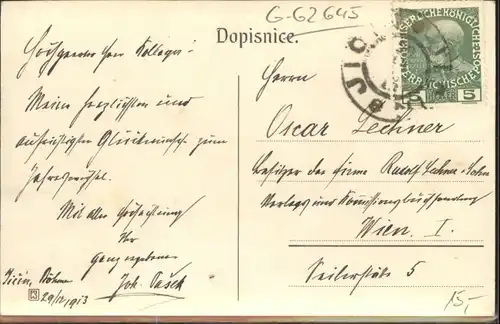 G-62645
Dopisnice.
KAISERLICHE KÖNIGLICHE
5
JIČ
Hochgeehrter Herr Kollega!
Meinen herzlichsten und
aufrichtigsten Glückwunsch zum
Jahreswechsel.
Mit aller Hochachtung
Ihr
ganz ergebener
Joh. Vašek
Jičin, Böhmen
29/12 1913
Herrn
Oscar Lechner
Besitzer der Firma Rudolf Lechner & Sohn
Verlags und Kommissionsbuchhandlung
Wien, I.
Seilerstätte 5
15,-